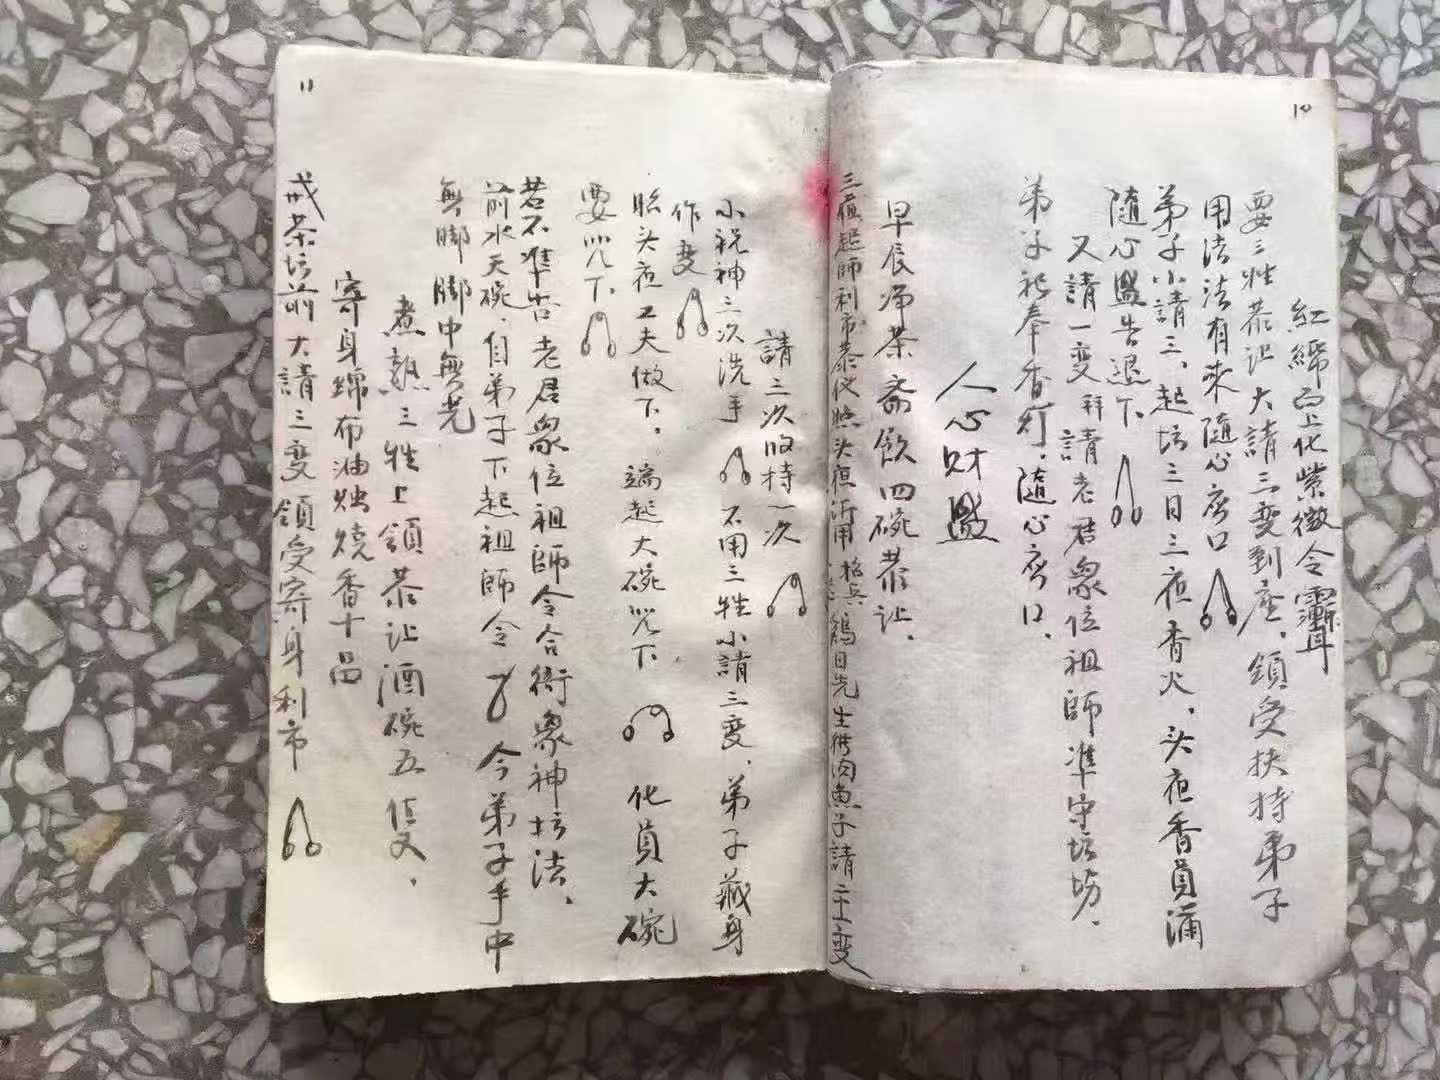 10
紅緜布上化紫微令
要三牲恭让大請三变到座、領受扶持弟子
用法法有来隨心应口
弟子小請三、起坊三日三夜香火、头夜香員满
隨心盥告退下
又請一变拜請老君衆位祖師準守坛坊、
弟子礼奉香灯、隨心应口、
人心财盥
早辰净茶斋飲四碗恭让、
三夜起師利市恭仪照头夜所用 鷄日先生供肉魚子請二十二变
11
請三次收持一次
小祝神三次洗手 不用三牲小請三变、弟子藏身
作变
照头夜工夫做下。端起大碗咒下 化員大碗
要咒下
若不準告老君衆位祖師令合衙衆神坛法、
前水天碗、自弟子下起祖師令 今弟子手中
無脚脚中無光
煮熟三牲上領恭让酒碗五伎又、
寄身綿布油烛燒香十品
戒茶坛前大請三变領受寄身利市